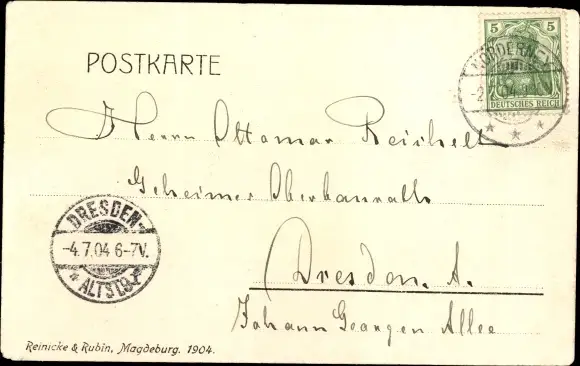 5 5
DEUTSCHES REICH
NORDERNEY
-2.7.04
POSTKARTE
Herrn Ottomar Reichelt
Geheimer Oberbaurath
Dresden. A.
Johann Georgen Allee
DRESDEN-
-4.7.04 6-7V.
* ALTST.
Reinicke & Rubin, Magdeburg. 1904.